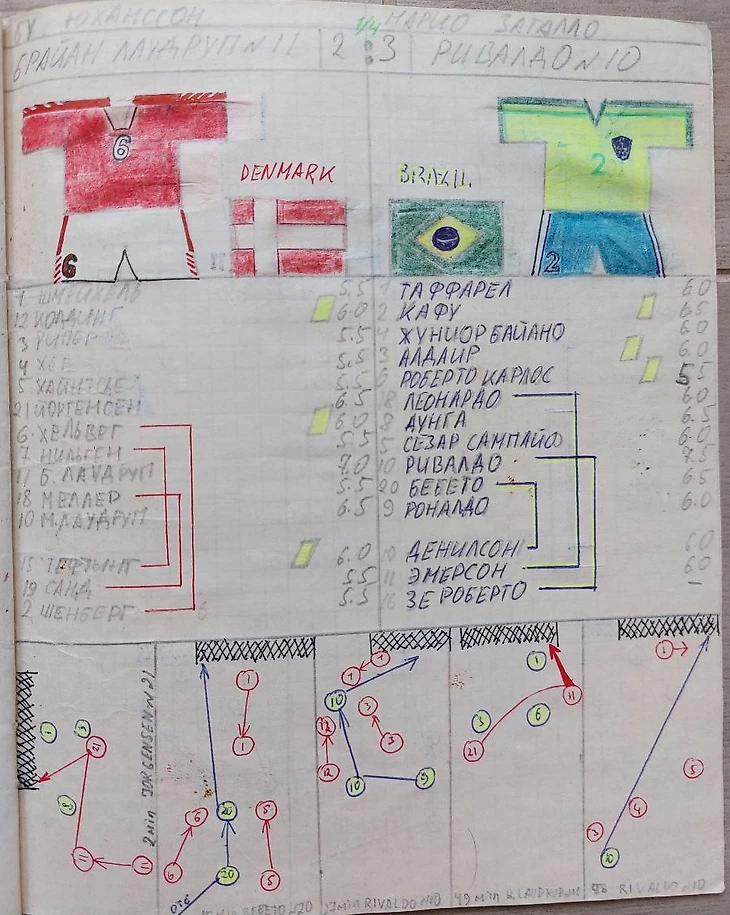 БУ ЮХАНССОН 1/4 МАРИО ЗАГАЛЛО
БРАЙАН ЛАУДРУП N 11 2 : 3 РИВАЛДО N 10
6
2
DENMARK
BRAZIL
6
2
1 ШМЕЙХЕЛЬ 5.5
12 КОЛДИНГ 6.0
3 РИПЕР 5.5
4 ХЕГ 5.5
5 ХАЙНТСЕ 5.5
21 ЙОРГЕНСЕН 6.5
6 ХЕЛЬВЕГ 6.0
7 НИЛЬСЕН 5.5
11 Б. ЛАУДРУП 7.0
18 МЕЛЛЕР 5.5
10 М. ЛАУДРУП 6.5
15 ТЕФТИНГ 6.0
19 САНД 5.5
2 ШЕНБЕРГ 5.5
6
1 ТАФФАРЕЛ 6.0
2 КАФУ 6.5
4 ЖУНИОР БАЙАНО 6.0
3 АЛДАИР 6.0
6 РОБЕРТО КАРЛОС 5.5
18 ЛЕОНАРДО 6.0
8 ДУНГА 6.5
5 СЕЗАР САМПАЙО 6.0
10 РИВАЛДО 7.5
20 БЕБЕТО 6.5
9 РОНАЛДО 6.0
ДЕНИЛСОН 6.0
11 ЭМЕРСОН 6.0
16 ЗЕ РОБЕРТО –
1
11
8
11
11
2 min JORGENSEN N 21
1
1
6
20
8
6
20
5
BEBETO N20
1
1
10
3
12
3
12
10
9
27 min RIVALDO N10
1
11
3
6
21
49 min B LAUDRUP N11
1
5
4
3
10
RIVALDO N10